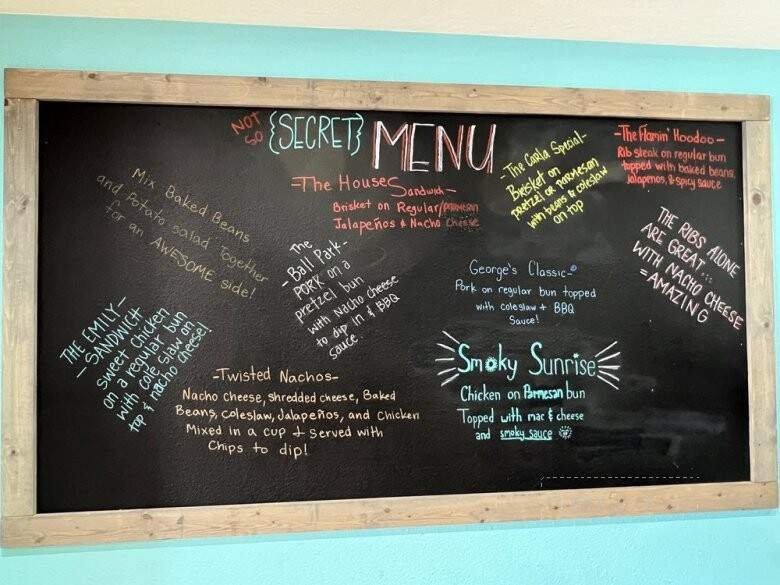 NOT SO {SECRET} MENU
-The House Sandwich-
Brisket on Regular/parmesan
Jalapeños & Nacho Cheese
-The Carla Special-
Brisket on
pretzel or parmesan
with beans & coleslaw
on top
-The Flamin' Hoodoo-
Rib steak on regular bun
topped with baked beans,
jalapenos, & spicy sauce
Mix Baked Beans
and Potato salad Together
for an AWESOME side!
The
-Ball Park-
PORK on a
pretzel bun
with Nacho cheese
to dip in & BBQ
sauce
George's Classic-
Pork on regular bun topped
with coleslaw + BBQ
Sauce!
THE RIBS ALONE
ARE GREAT...
WITH NACHO CHEESE
= AMAZING
THE EMILY-
-SANDWICH
sweet chicken
on a regular bun
with cole slaw on
top & nacho cheese!
-Twisted Nachos-
Nacho cheese, shredded cheese, Baked
Beans, coleslaw, Jalapeños, and Chicken
Mixed in a cup + Served with
Chips to dip!
Smoky Sunrise
Chicken on Parmesan bun
Topped with mac & cheese
and smoky sauce